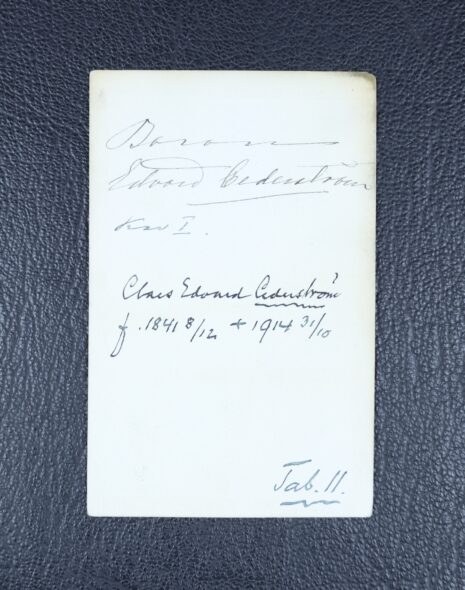 Baron
Edvard Cederström
Kav I.
Claes Edvard Cederström
f. 1841 8/12 + 1914 31/10
Tab. 11.